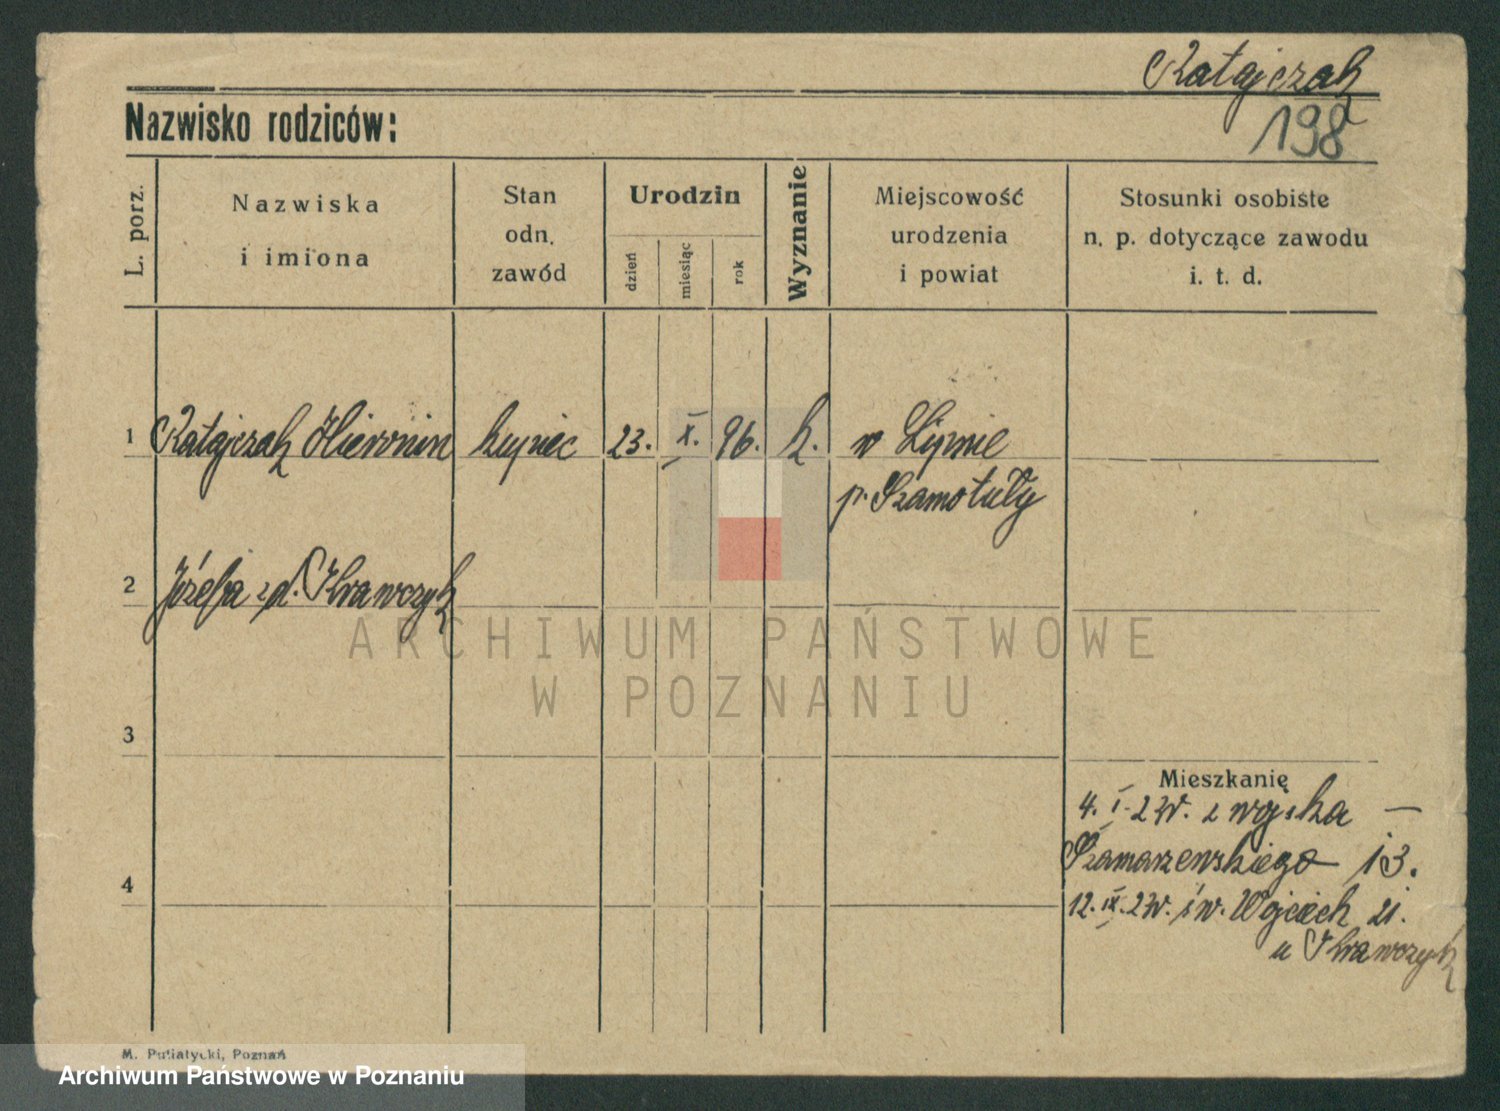 Ratajczak
Nazwisko rodziców:
198
L. porz.
Nazwiska
i imiona
Stan
odn.
zawód
Urodzin
dzień
miesiąc
rok
Wyznanie
Miejscowość
urodzenia
i powiat
Stosunki osobiste
n. p. dotyczące zawodu
i. t. d.
1 Ratajczak Hieronim kupiec 23. X. 96. k. w Lipnie
p. Szamotuły
2 Józefa z d. Krawczyk
ARCHIWUM PAŃSTWOWE
W POZNANIU
3
Mieszkanię
4. I. 2 z wojska —
Szamarzewskiego 13.
4
12. IX. św. Wojciech 21.
u Krawczyk
M. Putiatycki, Poznań
Archiwum Państwowe w Poznaniu